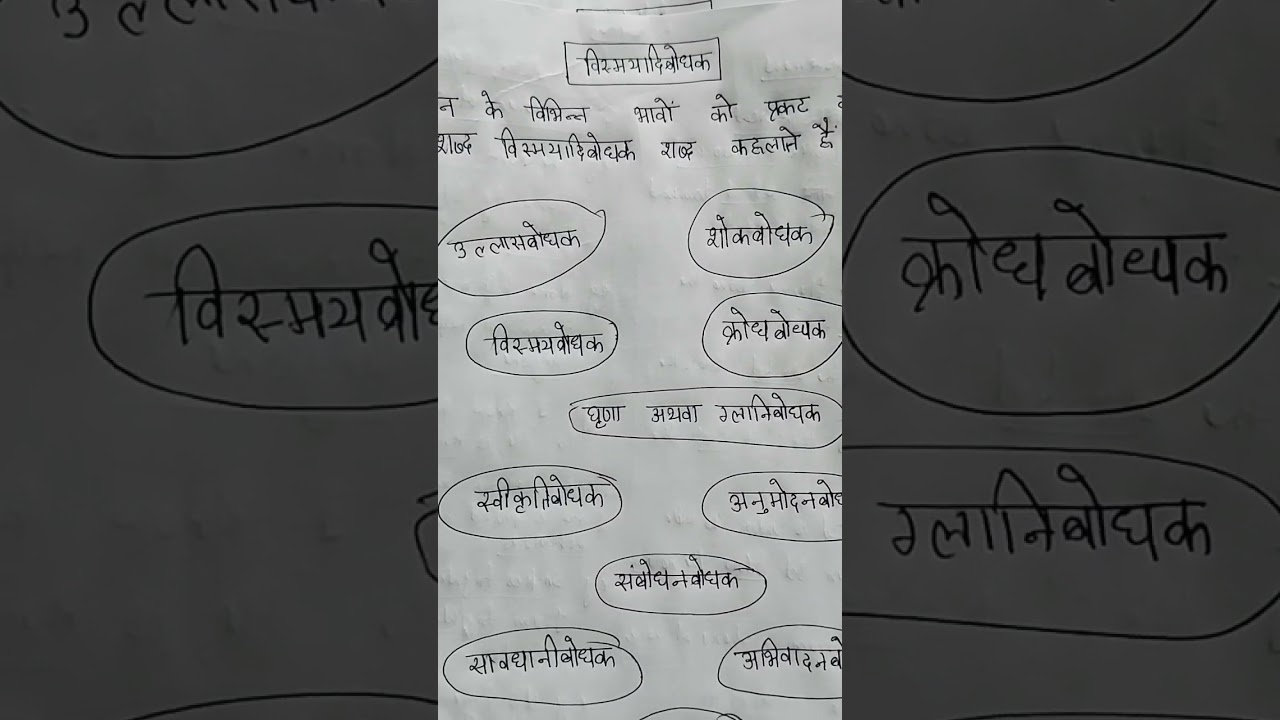 विस्मयादिबोधक
के विभिन्न भावों को प्रकट
शब्द विस्मयादिबोधक शब्द कहलाते हैं
उल्लासबोधक शोकबोधक
विस्मयबोधक क्रोधबोधक
घृणा अथवा ग्लानिबोधक
स्वीकृतिबोधक अनुमोदनबोध
संबोधनबोधक
सावधानीबोधक अभिवादनबो